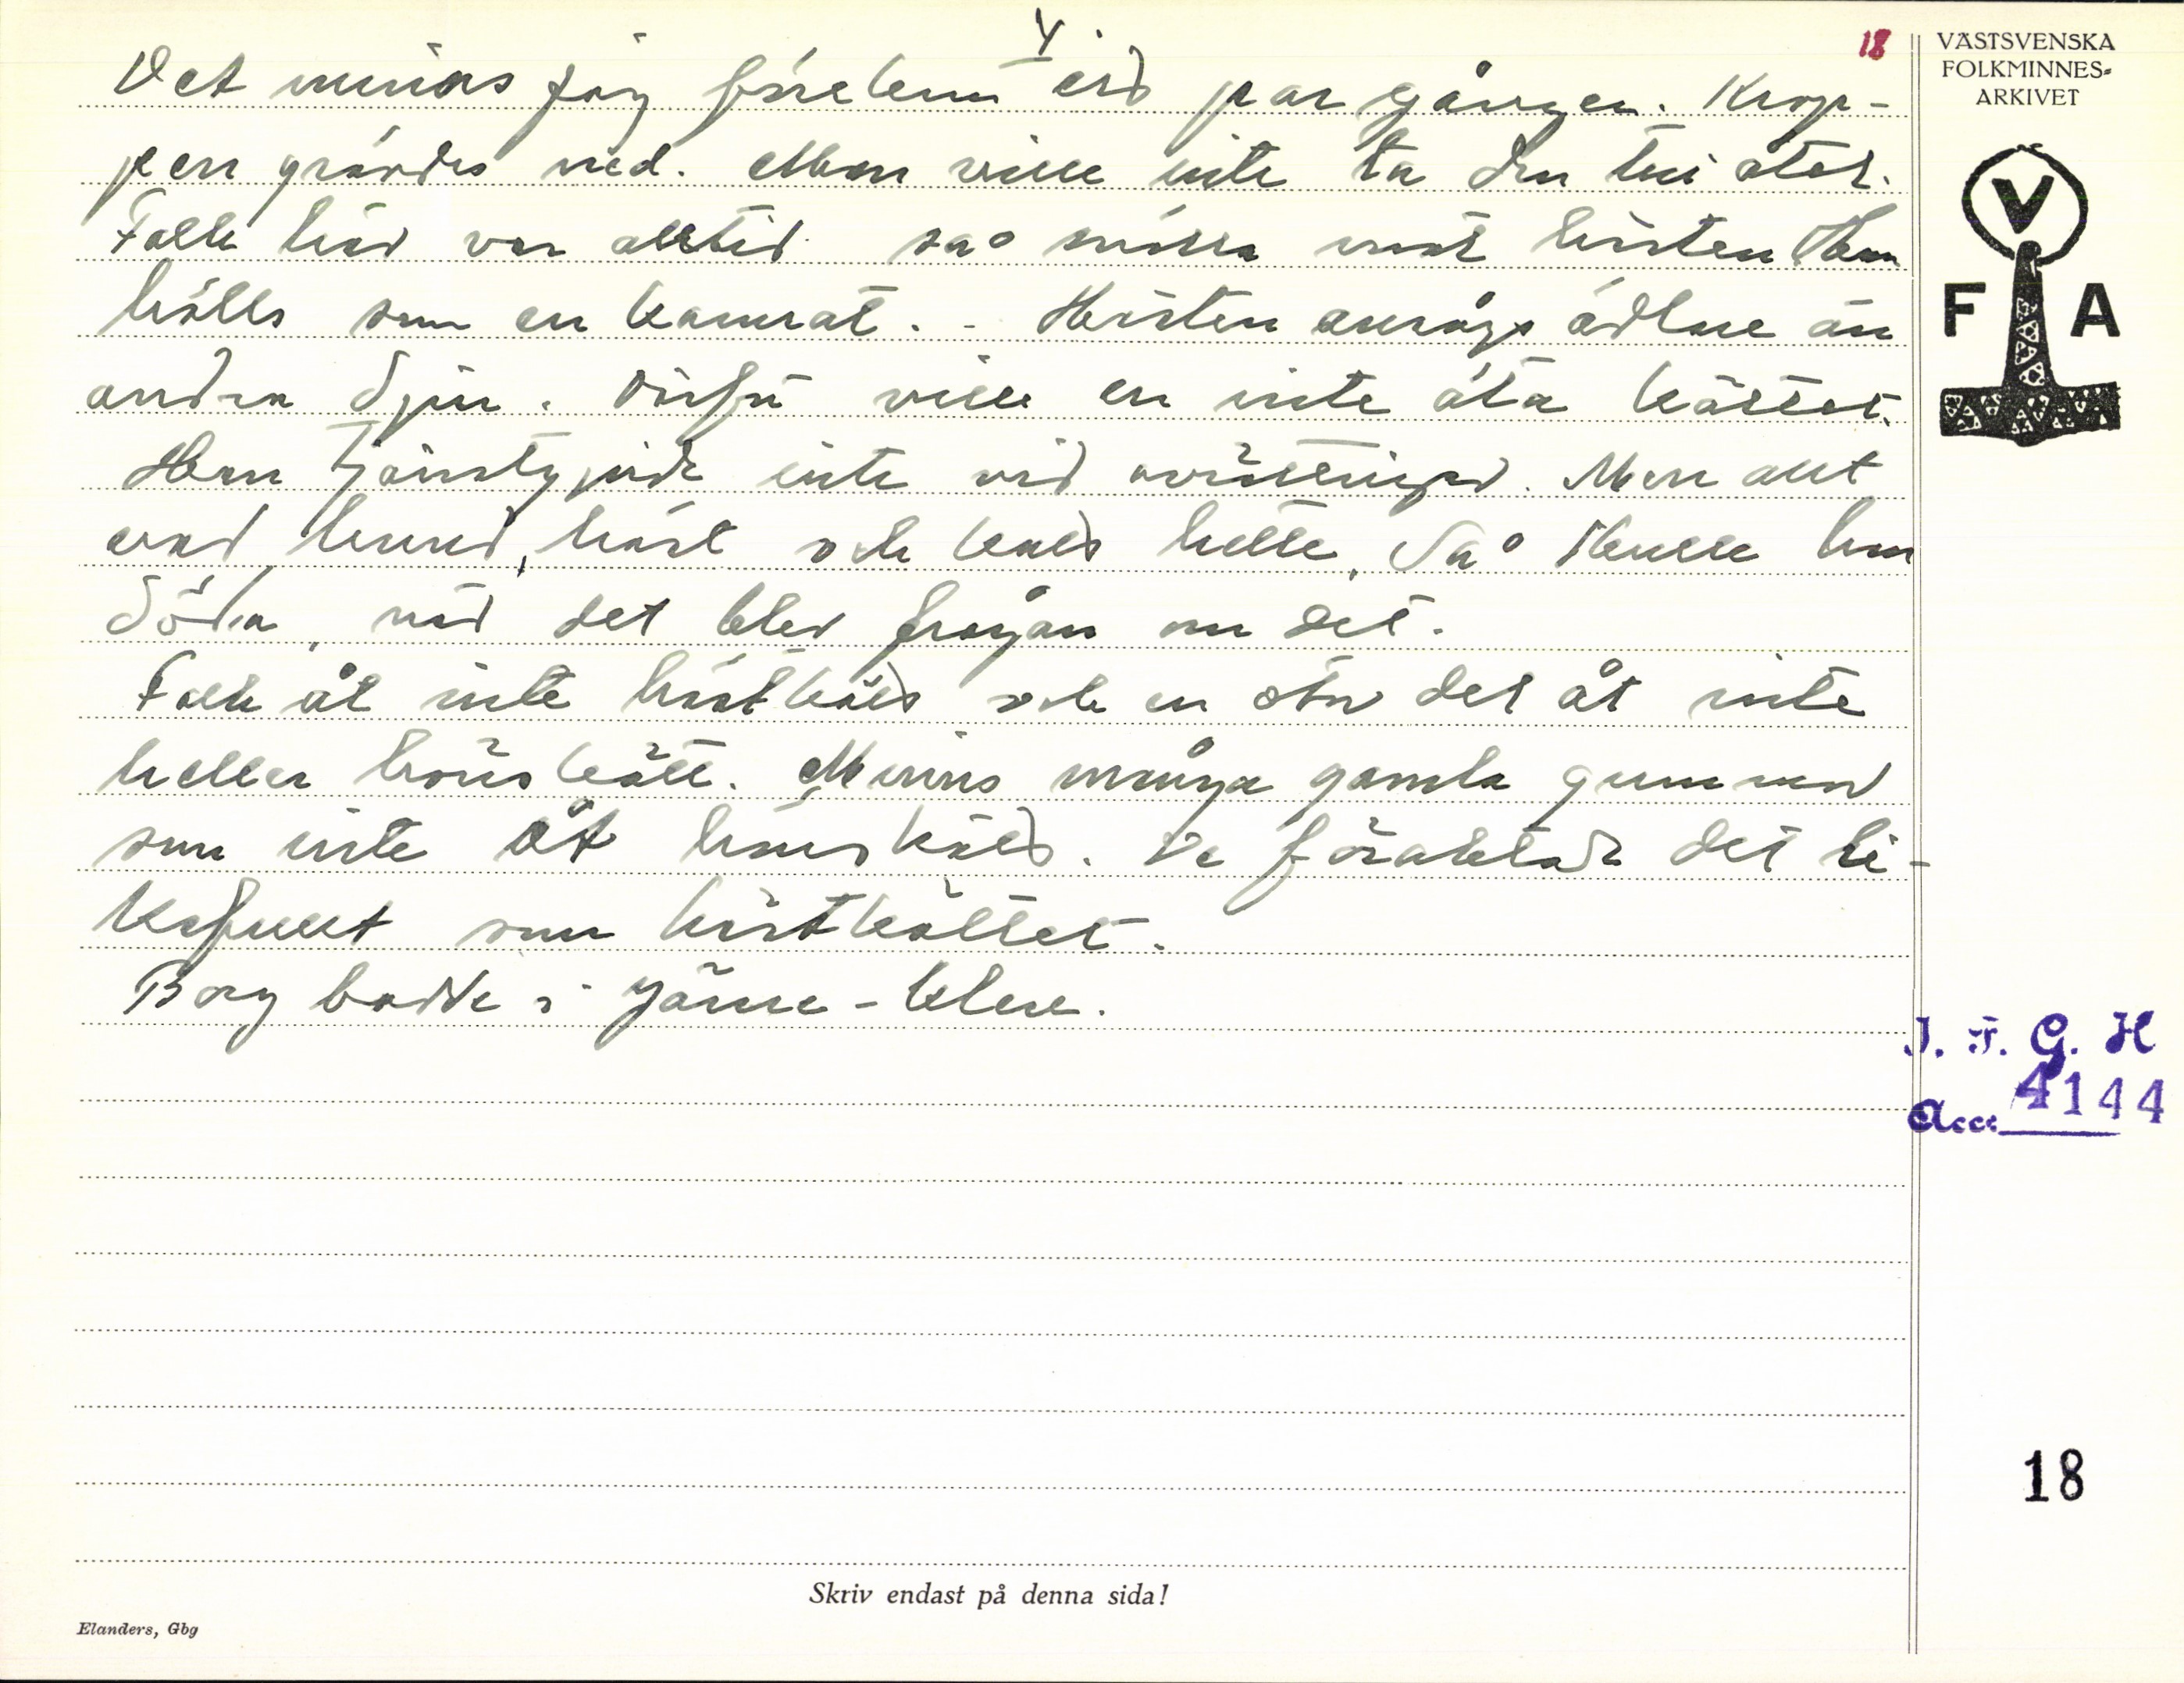 4.
18
VÄSTSVENSKA
FOLKMINNES-
ARKIVET
V
F A
Det minns jag förekom ett par gånger. Krop-
pen grävdes ned. Man ville inte ta den till åtel.
Folk här var alltid så snälla mot hästen. Han
hölls som en kamrat. - Hästen ansågs ädlare än
andra djur. Därför ville en inte äta köttet.
Han tjänstgjorde inte vid avrättningar. Men allt
vad hund, häst och katt hette, så skulle han
döda, när det blev frågan om det.
Folk åt inte hästkött och en stor del åt inte
heller hönskött. Minns många gamla gummor
som inte åt hönskött. De föraktade det li-
kafullt som hästköttet.
Borg bodde i
I. F. G. H
Acc: 4144
18
Skriv endast på denna sida!
Elanders, Gbg